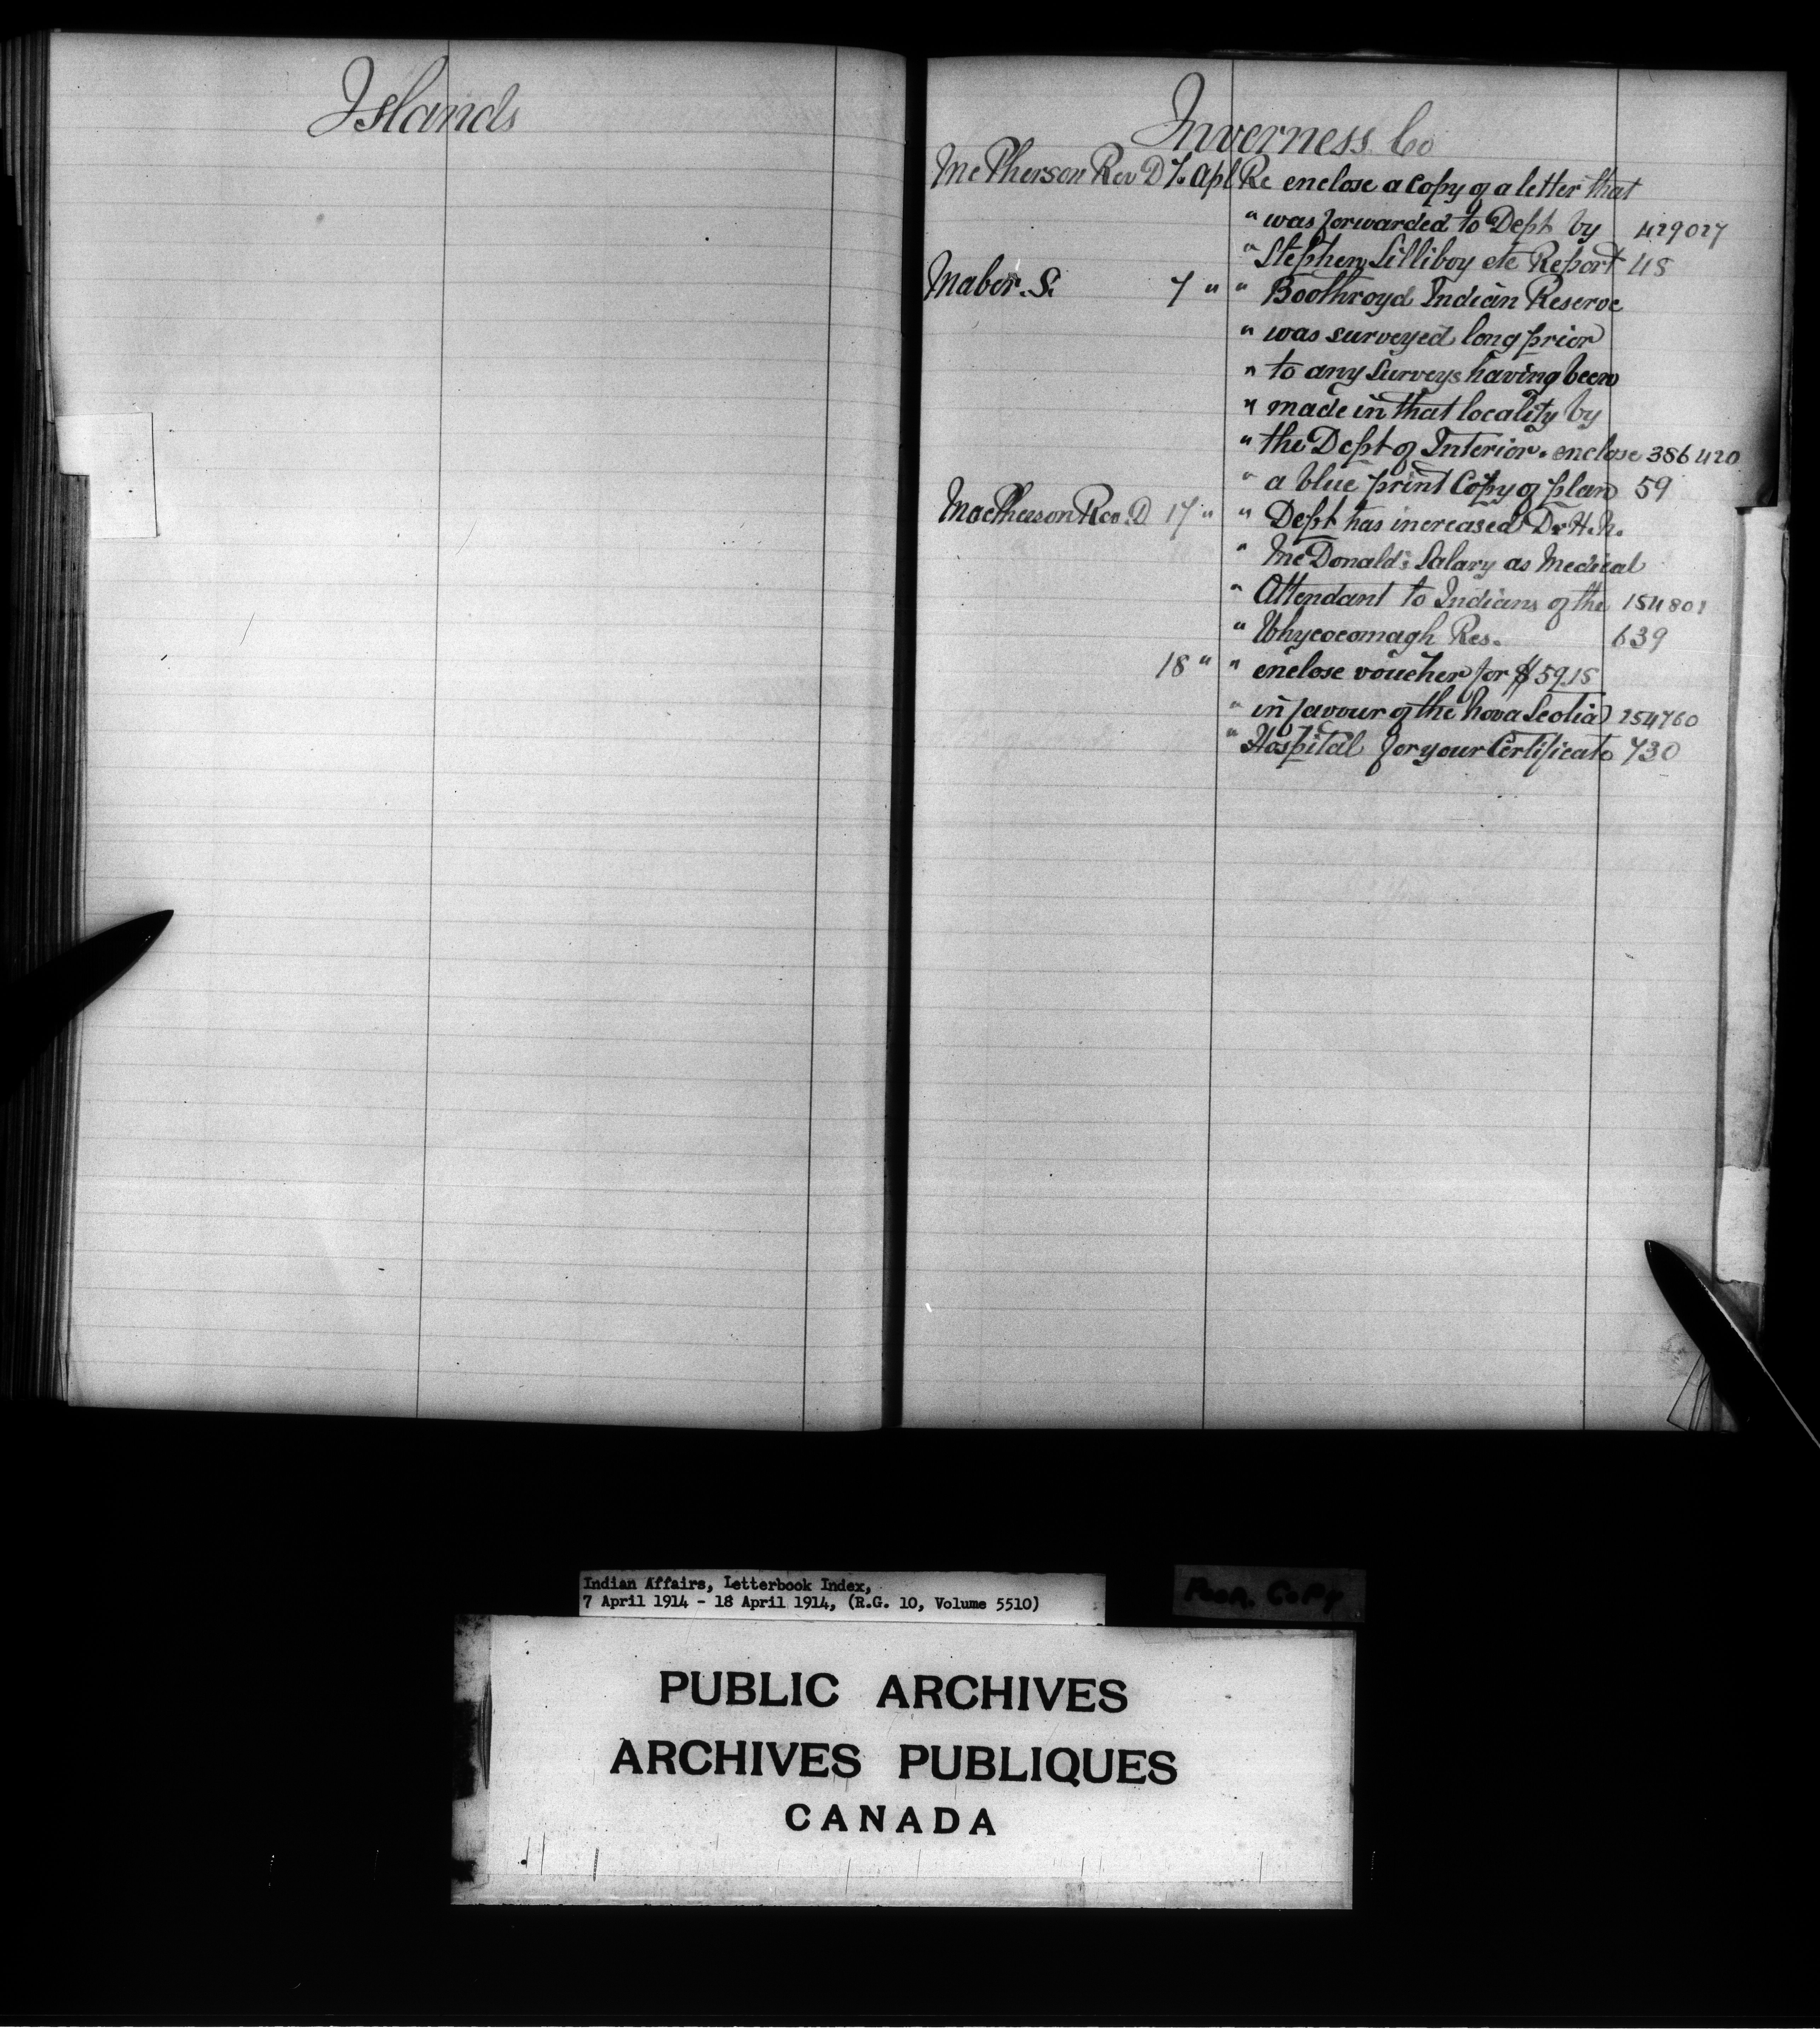 Islands
Inverness Co
McPherson Rev D 7. Apl Re enclose a copy of a letter that
" was forwarded to Dept by 429027
" Stephen Lilliboy etc Report 48
Maber. S. 7 " " Boothroyd Indian Reserve
" was surveyed long prior
" to any Surveys having been
" made in that locality by
" the Dept of Interior. enclose 386420
" a blue print Copy of plan 59
MacPherson Rev. D 17 " " Dept has increased Dr H. N.
" McDonald's Salary as Medical
" Attendant to Indians of the 154801
" Whycocomagh Res. 639
18 " " enclose voucher for $59.15
" in favour of the Nova Scotia 254760
" Hospital for your Certificate 730
Indian Affairs, Letterbook Index,
7 April 1914 - 18 April 1914, (R.G. 10, Volume 5510)
Poor. Copy
PUBLIC ARCHIVES
ARCHIVES PUBLIQUES
CANADA